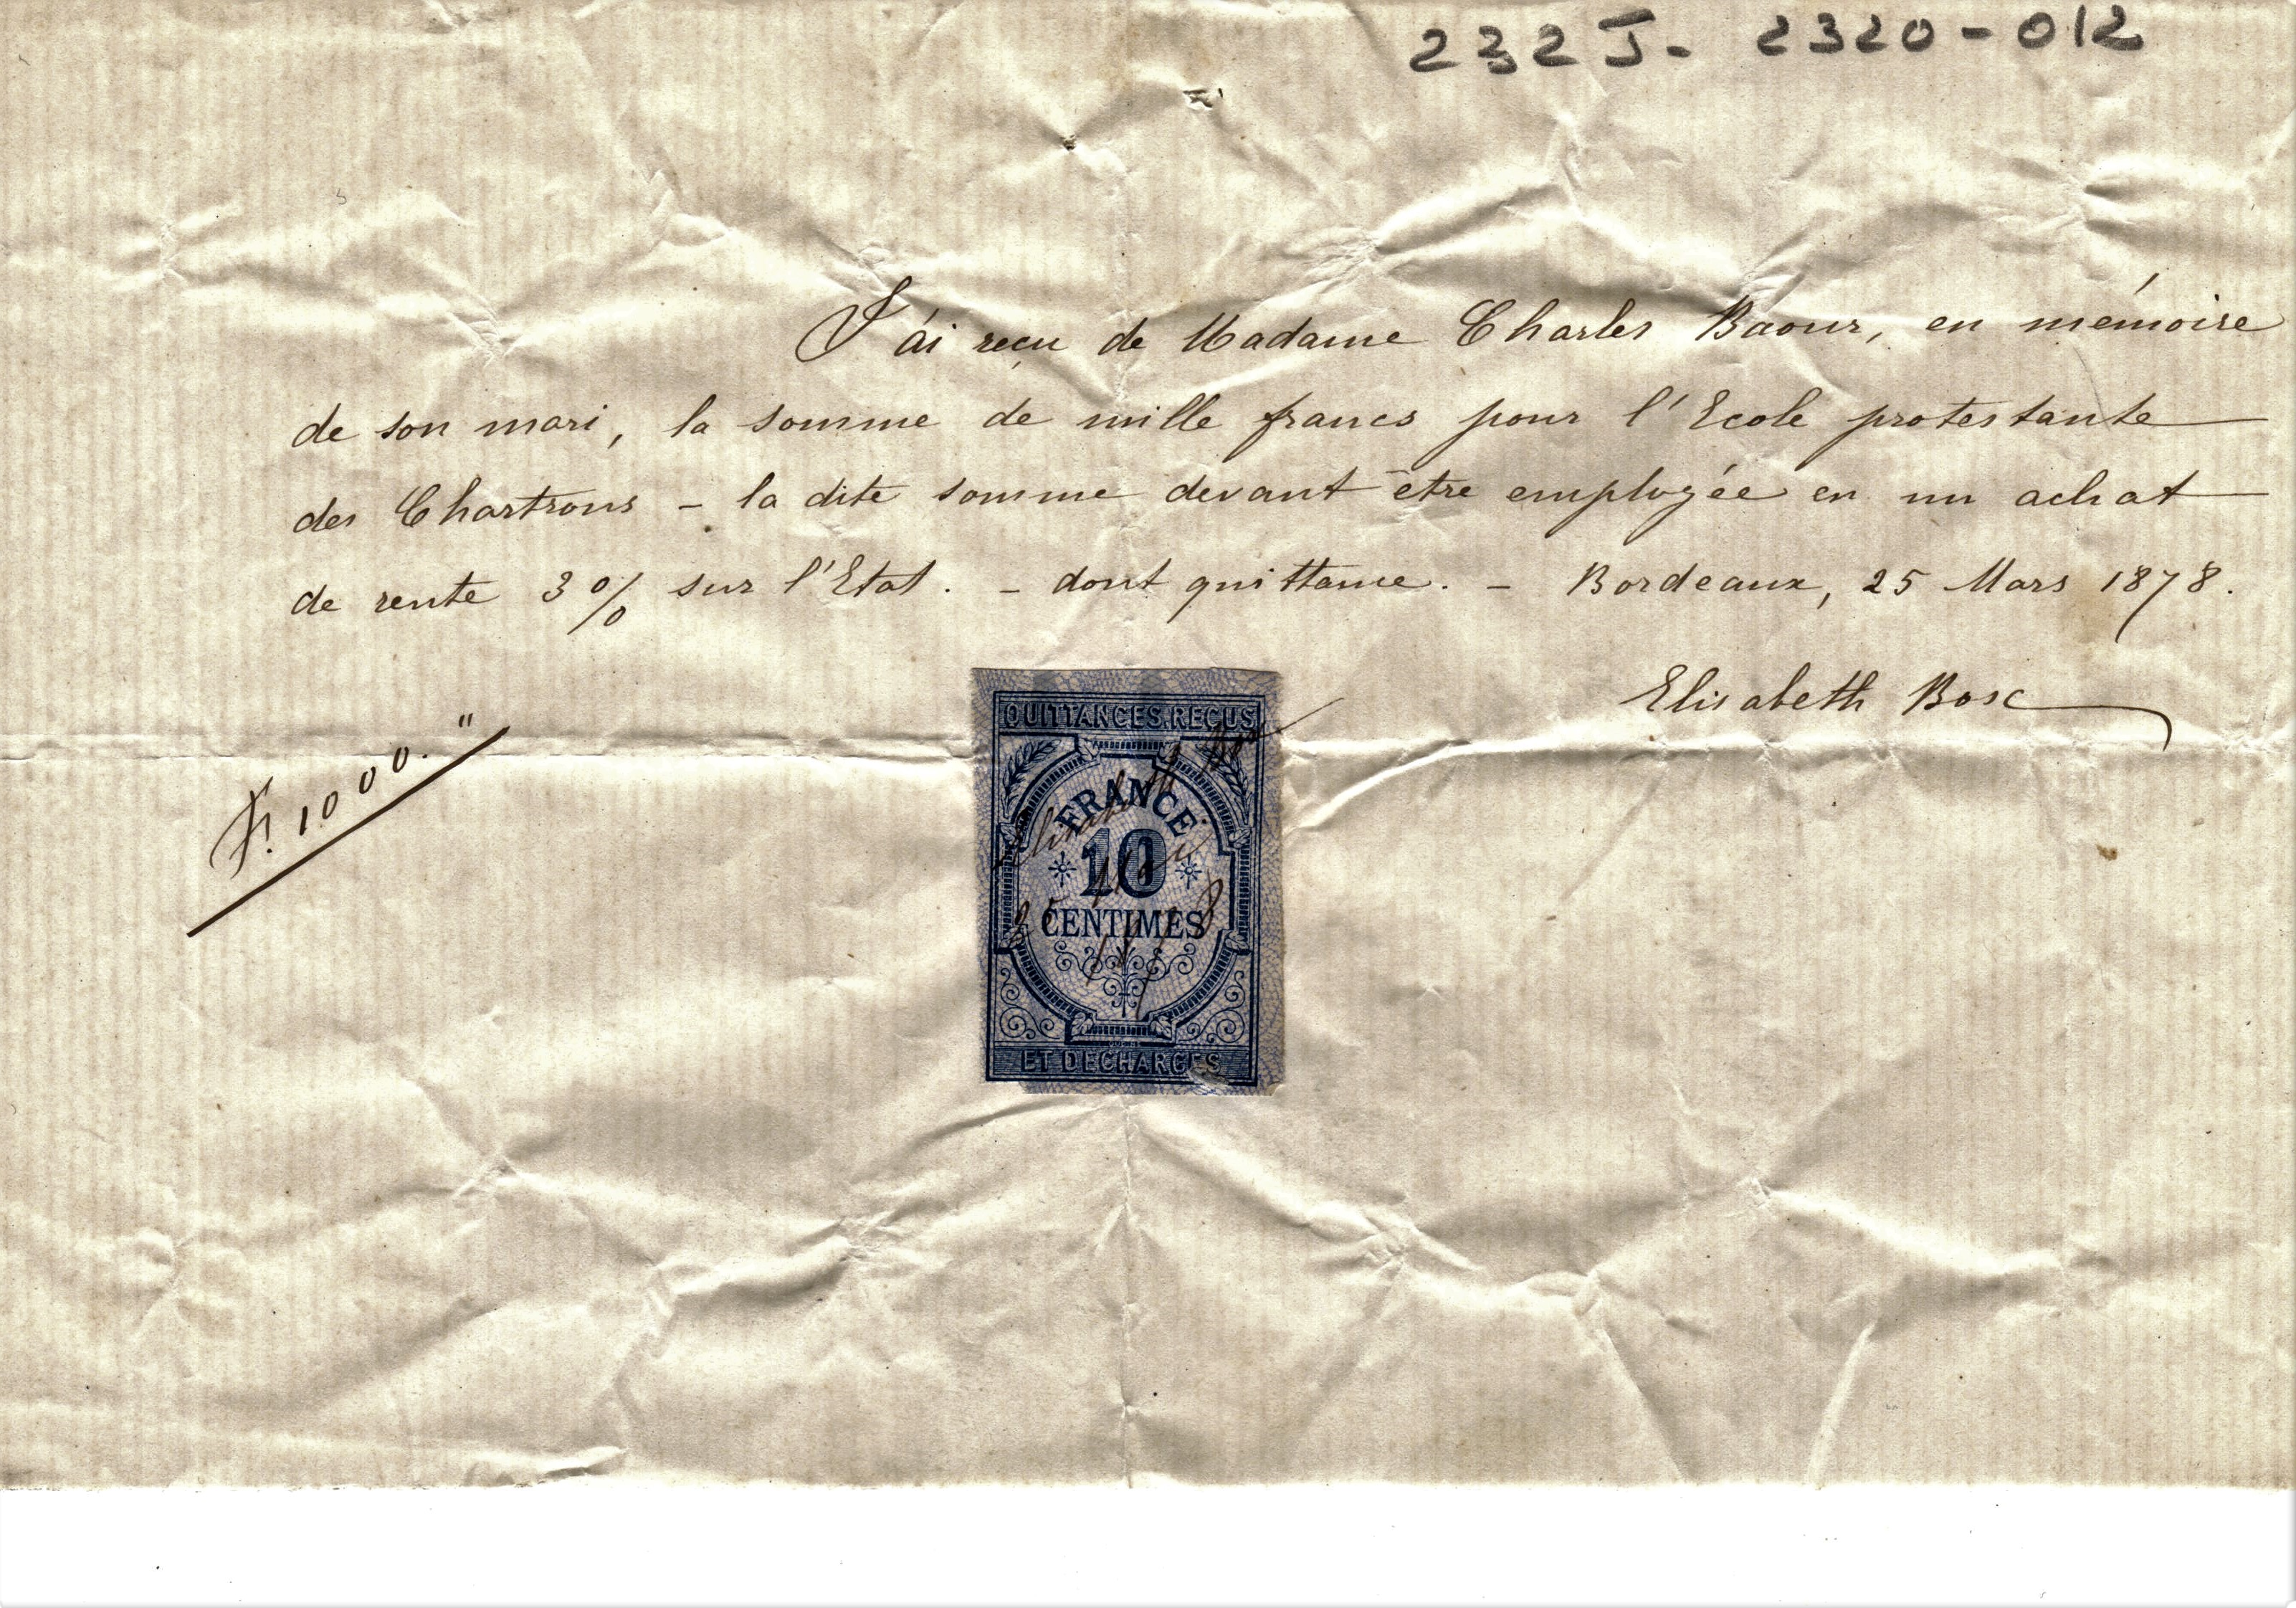 232J- 2320-012
J'ai reçu de Madame Charles Baour, en mémoire
de son mari, la somme de mille francs pour l'Ecole protestante
des Chartrons – la dite somme devant être employée en un achat
de rente 3% sur l'Etat. – dont quittance. – Bordeaux, 25 Mars 1878.
Elisabeth Bosc
F. 1000."
QUITTANCES, REÇUS
FRANCE
10
CENTIMES
ET DECHARGES
Elisabeth Bosc
25 Mars
1878